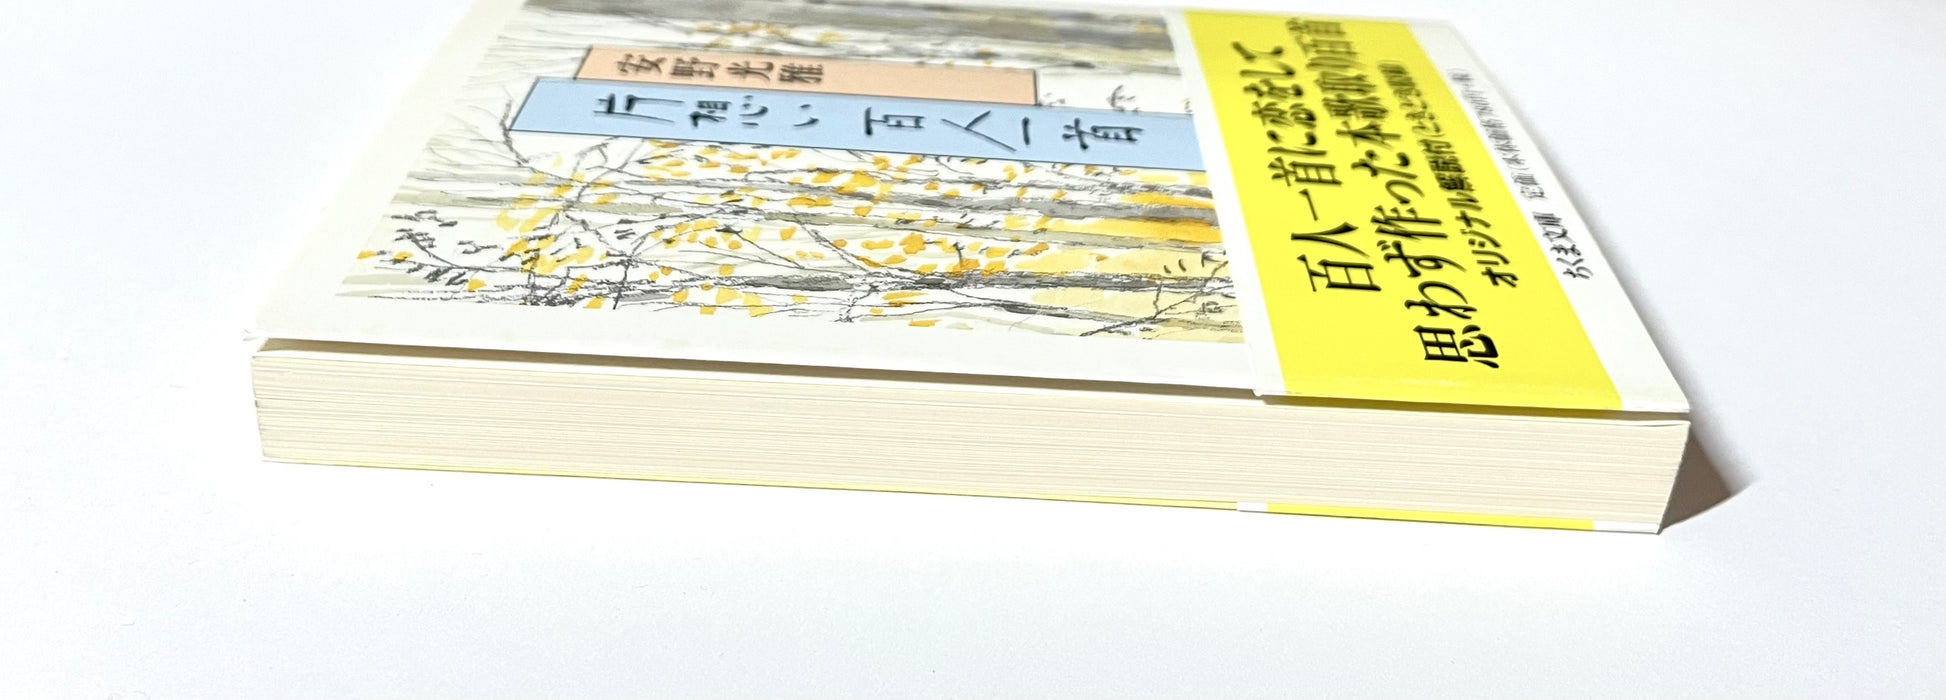 片想い百人一首
安野光雅
百人一首に恋をして
思わず作った本歌取り百首
オリジナル解説付
ちくま文庫 定価